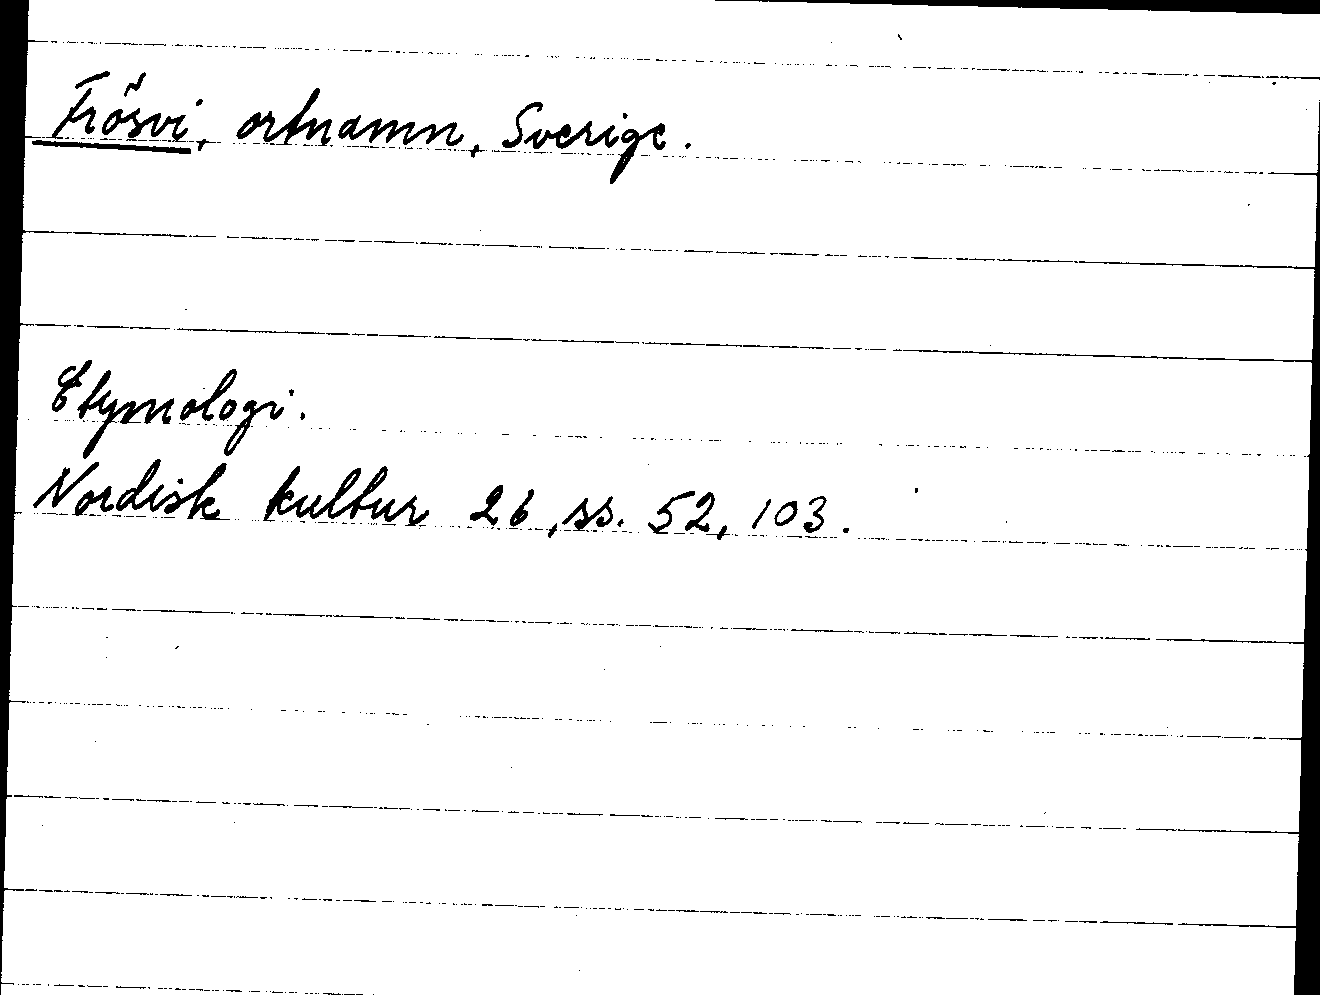 Frösvi, ortnamn, Sverige.
Etymologi.
Nordisk kultur 26, ss. 52, 103.